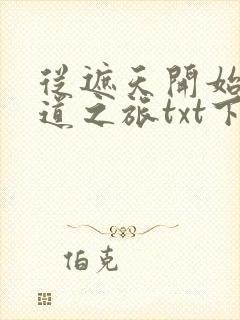 從遮天開始
道之旅txt下
伯克